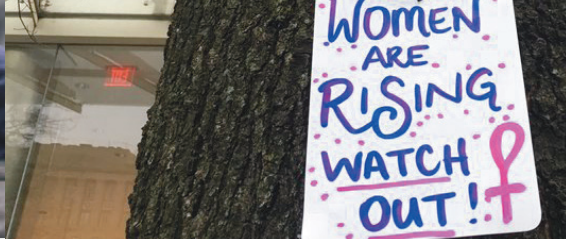 WOMEN
ARE
RISING
WATCH
OUT!